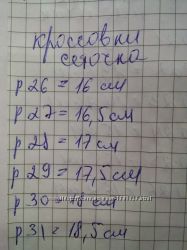 кроссовки
сеточка
р 26 = 16 см
р 27 = 16,5 см
р 28 = 17 см
р 29 = 17,5 см
р 30 = см
р 31 = 18,5 см